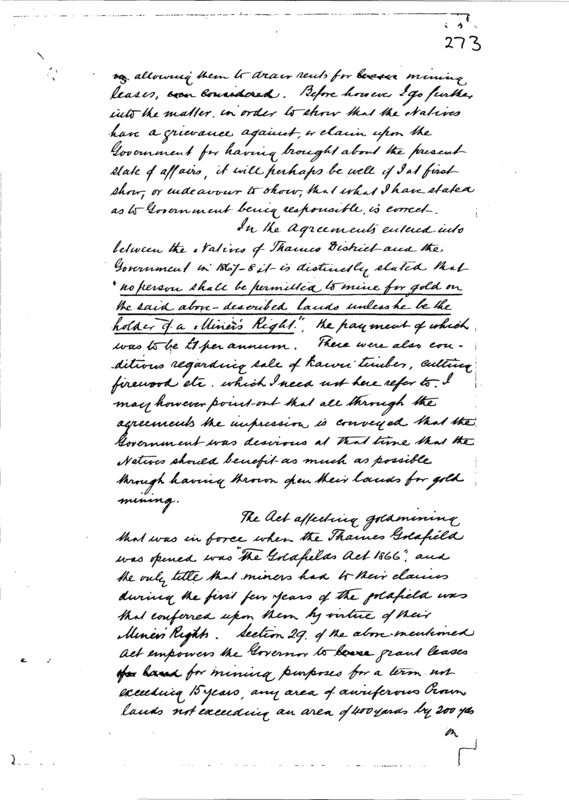 273
allowing them to draw rents for mining
leases, even considered. Before however I go further
into the matter, in order to show that the Natives
have a grievance against, or claim upon the
Government for having brought about the present
state of affairs, it will perhaps be well if I at first
show, or endeavour to show, that what I have stated
as to Government being responsible, is correct.
In the Agreements entered into
between the Natives of Thames District and the
Government in 1867-8 it is distinctly stated that
"no person shall be permitted to mine for gold on
the said above-described lands unless he be the
holder of a Miner's Right", the payment of which
was to be £1 per annum. There were also con-
ditions regarding sale of Kauri timber, cutting
firewood etc. which I need not here refer to. I
may however point out that all through the
agreements the impression is conveyed that the
Government was desirous at that time that the
Natives should benefit as much as possible
through having thrown open their lands for gold
mining.
The Act affecting goldmining
that was in force when the Thames Goldfield
was opened was "The Goldfields Act 1866", and
the only title that miners had to their claims
during the first few years of the goldfield was
that conferred upon them by virtue of their
Miner's Rights. Section 29. of the above mentioned
Act empowers the Governor to lease grant leases
for mining purposes for a term not
exceeding 15 years, any area of auriferous Crown
lands not exceeding an area of 400 yards by 200 yds
or